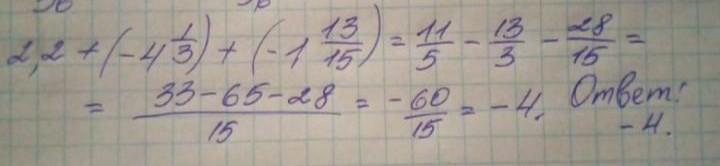 2,2 + (-4 1/3) + (-1 13/15) = 11/5 - 13/3 - 28/15 =
= (33-65-28)/15 = -60/15 = -4. Ответ:
-4.